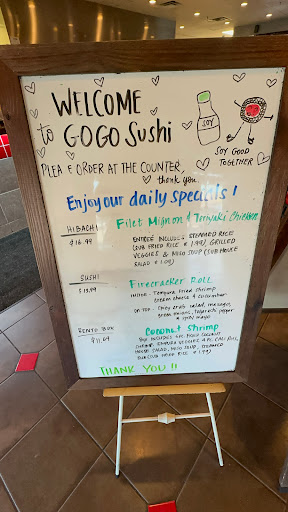 WELCOME
to GOGO Sushi
SOY
SOY GOOD
TOGETHER
PLEA E ORDER AT THE COUNTER,
thank you.
Enjoy our daily specials !
HIBACHI
$16.99
Filet Mignon & Teriyaki Chicken
ENTRÉE INCLUDES: STEAMED RICE
(SUB FRIED RICE + 1.99), GRILLED
VEGGIES & MISO SOUP (SUB HOUSE
SALAD
SUSHI
$13.99
Firecracker Roll
INSIDE - Tempura fried shrimp
cream cheese & cucumber
ON TOP - Spicy crab salad, masago,
green onions, jalapeño pepper
& spicy mayo
BENTO BOX
$11.69
Coconut Shrimp
BOX INCLUDES 4PC. PANKO COCONUT
SHRIMP, TEMPURA VEGGIES, 4 PC. CALI ROLL,
HOUSE SALAD, MISO SOUP, STEAMED
RICE (SUB FRIED RICE + 1.99)
THANK YOU !!